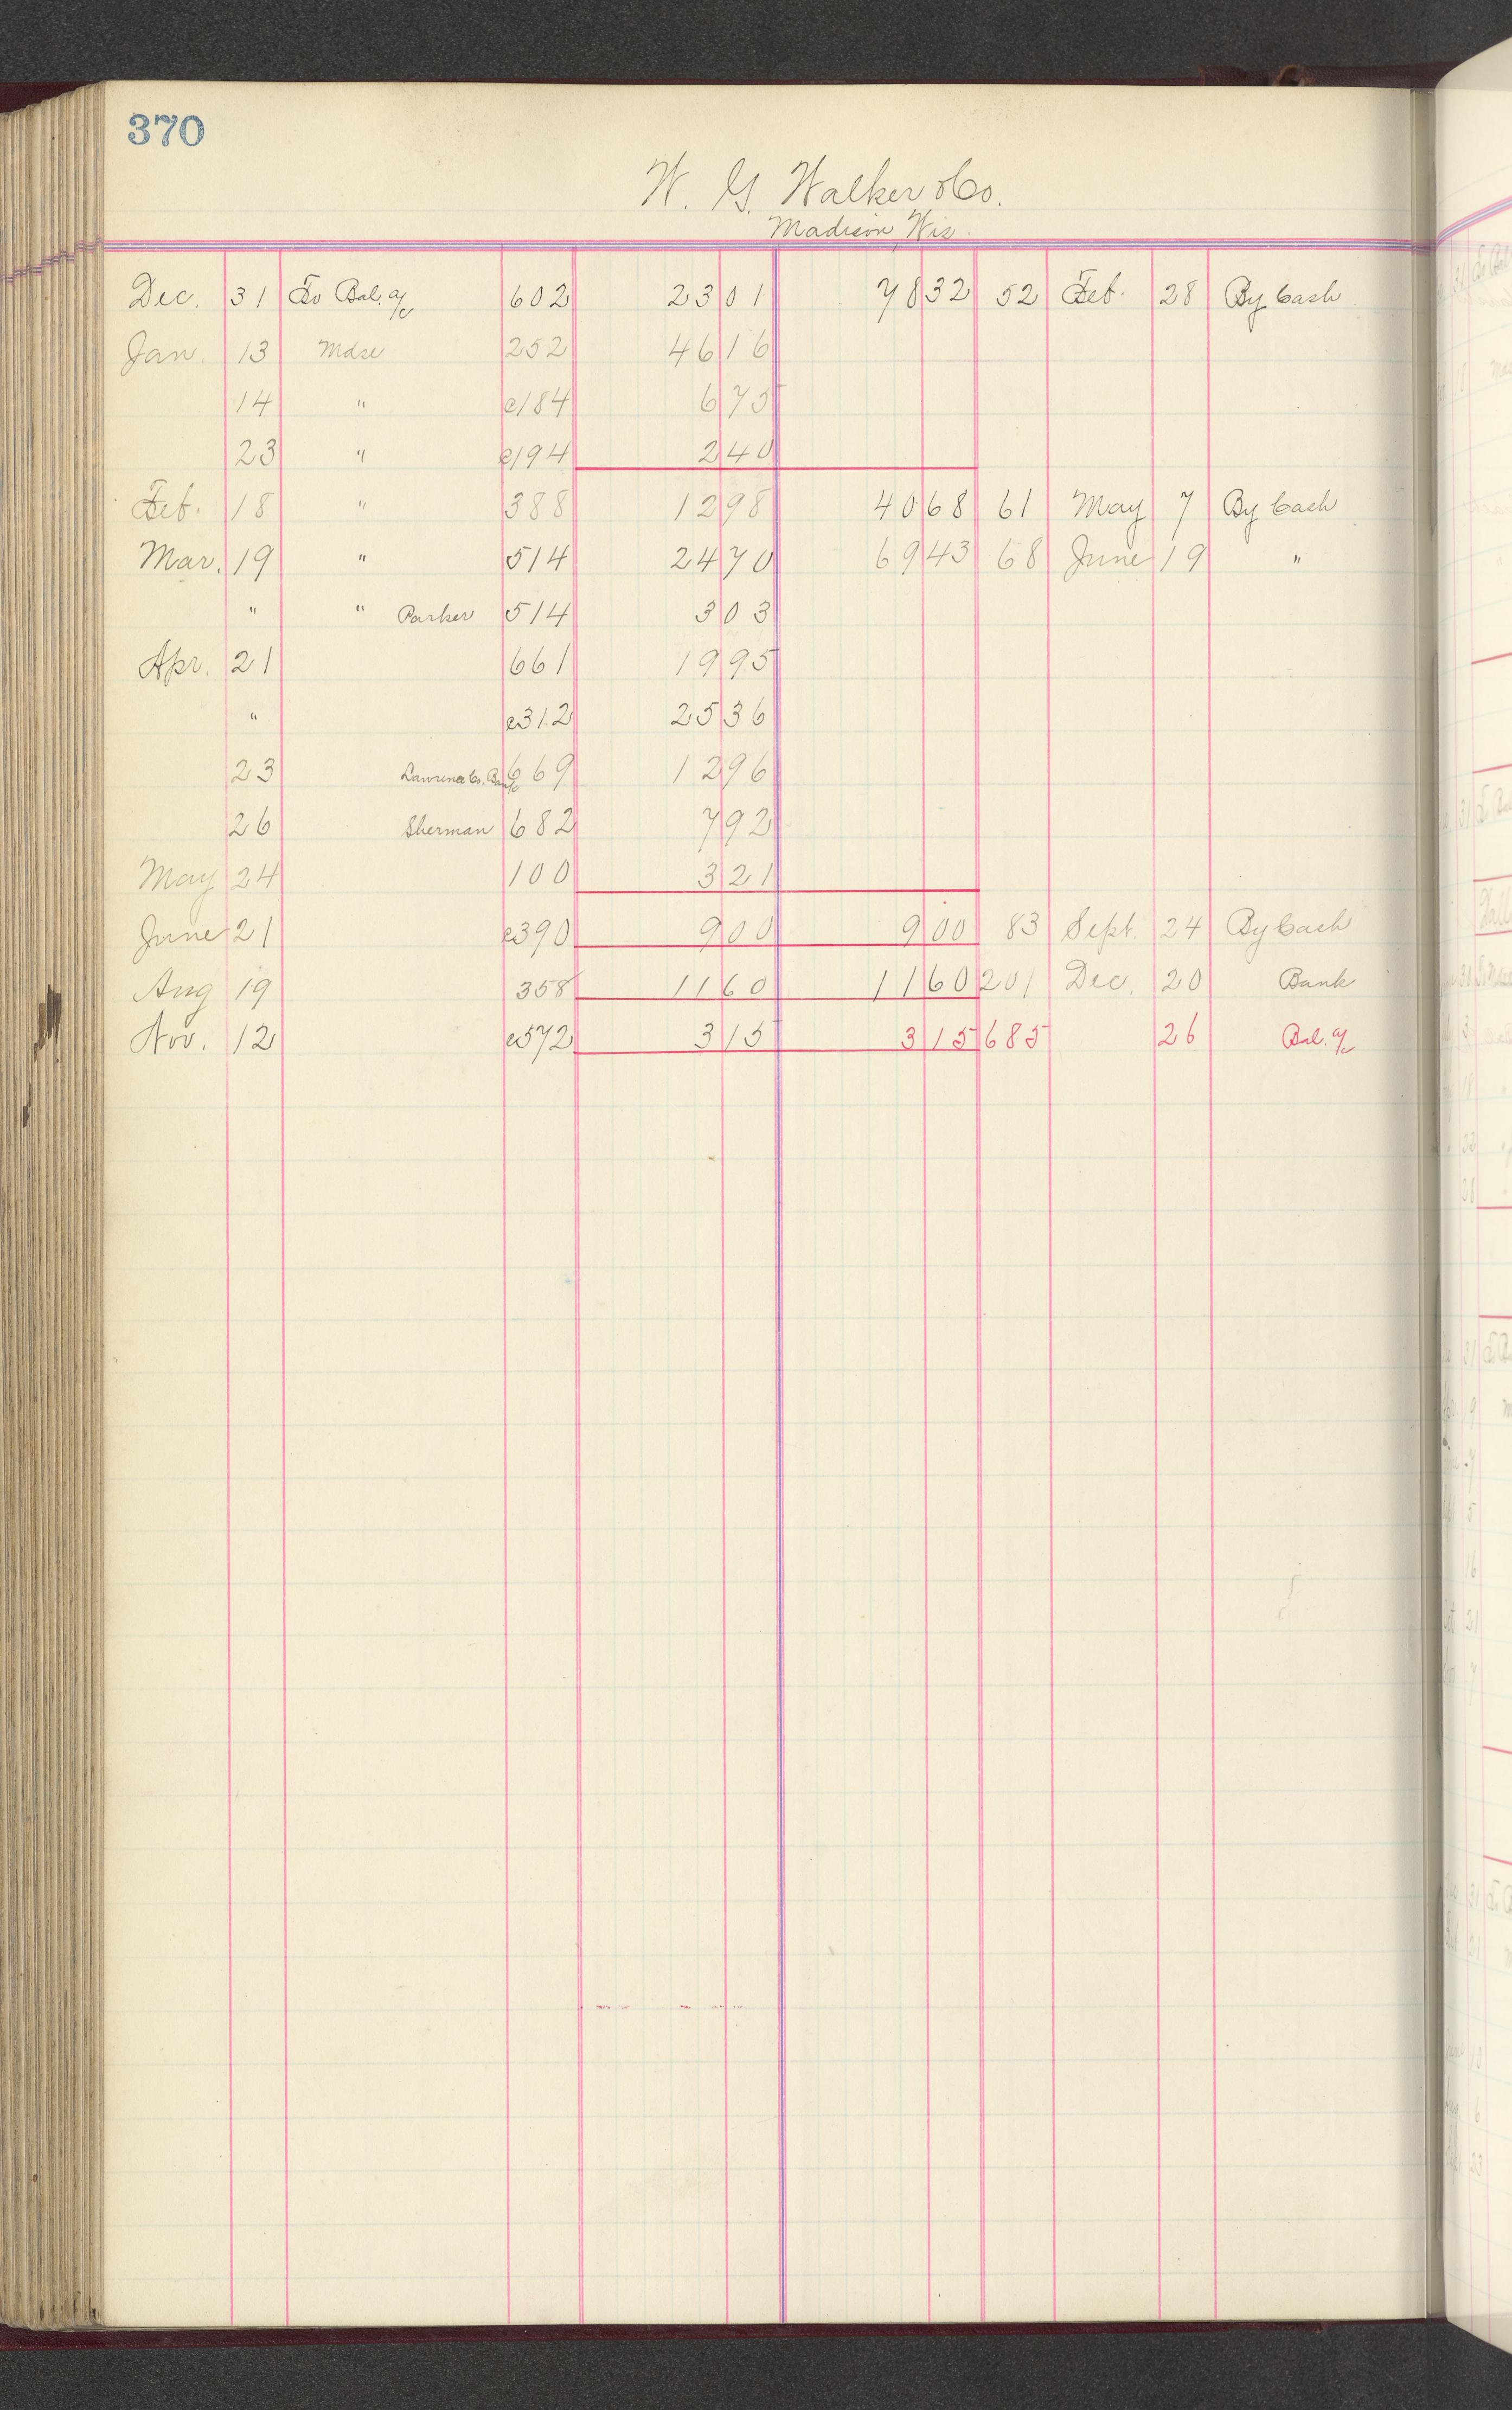 370
W. G. Walker & Co.
Madison Wis.
Dec. 31 To Bal. a/c 602 23 01 78 32 52 Feb. 28 By Cash
Jan. 13 Mdse 252 46 16
14 " c184 6 75
23 " c194 2 40
Feb. 18 " 388 12 98 40 68 61 May 7 By Cash
Mar. 19 " 514 24 70 69 43 68 June 19 "
" " Parker 514 3 03
Apr. 21 661 19 95
" c312 25 36
23 Lawrence Co. 669 12 96
26 Sherman 682 7 92
May 24 100 3 21
June 21 c390 9 00 9 00 83 Sept. 24 By Cash
Aug 19 358 11 60 11 60 201 Dec. 20 Bank
Nov. 12 c572 3 15 3 15 685 26 Bal. a/c